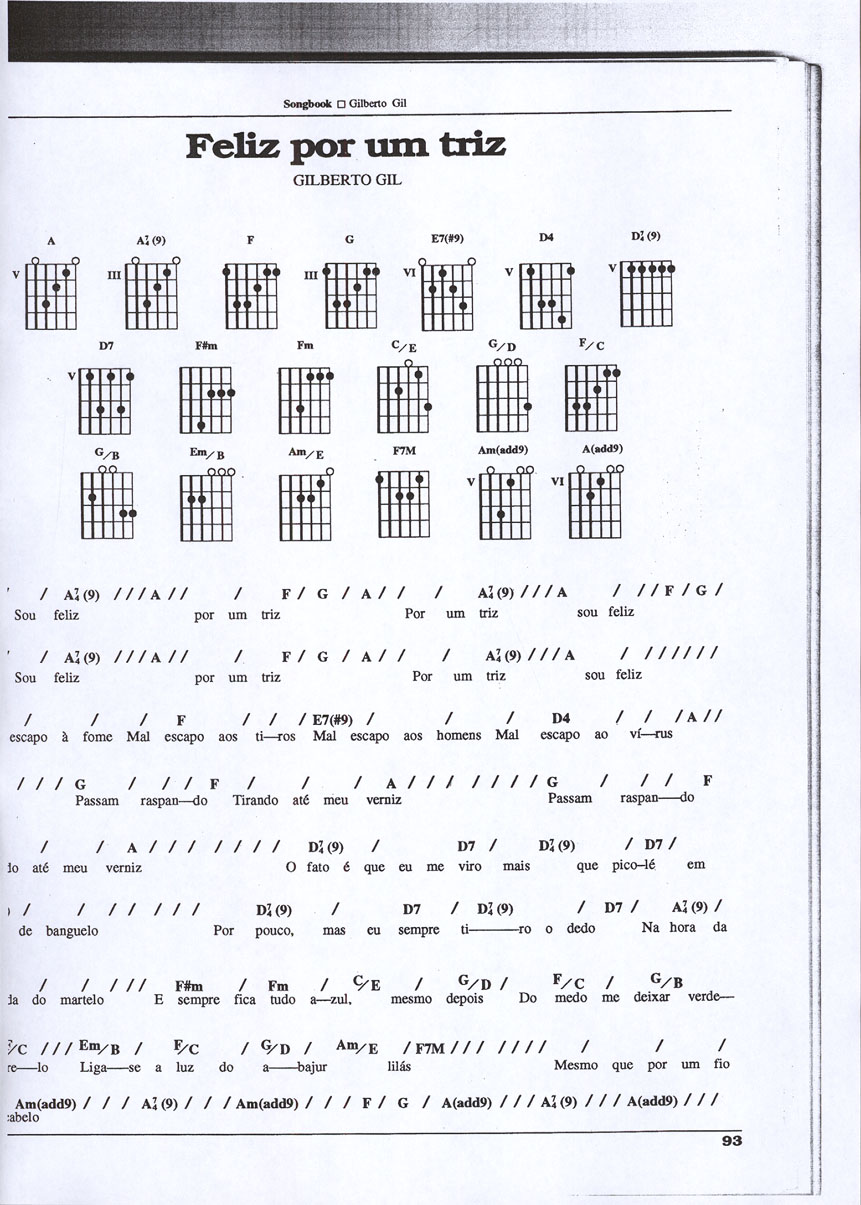 Songbook □ Gilberto Gil
Feliz por um triz
GILBERTO GIL
A A7/4(9) F G E7(#9) D4 D7/4(9)
V III III VI V V
D7 F#m Fm C/E G/D F/C
V
G/B Em/B Am/E F7M Am(add9) A(add9)
V VI
/ A7/4(9) / / / A / / / F / G / A / / / A7/4(9) / / / A / / / F / G /
Sou feliz por um triz Por um triz sou feliz
/ A7/4(9) / / / A / / / F / G / A / / / A7/4(9) / / / A / / / / / / /
Sou feliz por um triz Por um triz sou feliz
/ / / F / / / E7(#9) / / / D4 / / / A / /
escapo à fome Mal escapo aos ti—ros Mal escapo aos homens Mal escapo ao ví—rus
/ / / G / / / F / / / A / / / / / / / G / / / F
Passam raspan—do Tirando até meu verniz Passam raspan—do
/ / A / / / / / / / D7/4(9) / D7 / D7/4(9) / D7 /
do até meu verniz O fato é que eu me viro mais que pico–lé em
) / / / / / / / D7/4(9) / D7 / D7/4(9) / D7 / A7/4(9) /
de banguelo Por pouco, mas eu sempre ti———ro o dedo Na hora da
/ / / / / F#m / Fm / C/E / G/D / F/C / G/B
da do martelo E sempre fica tudo a—zul, mesmo depois Do medo me deixar verde—
/C / / / Em/B / F/C / G/D / Am/E / F7M / / / / / / / / / /
re—lo Liga—se a luz do a—bajur lilás Mesmo que por um fio
Am(add9) / / / A7/4(9) / / / Am(add9) / / / F / G / A(add9) / / / A7/4(9) / / / A(add9) / / /
abelo
93